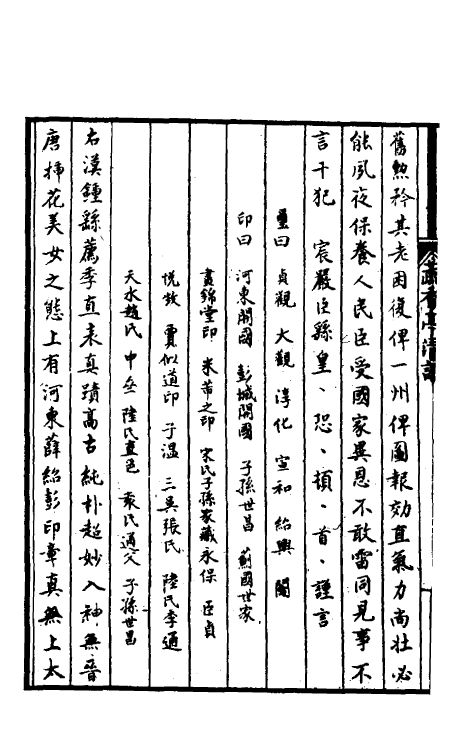 舊勲矜其老困復俾一州俾圖報効直氣力尚壯必
能夙夜保養人民臣受國家異恩不敢雷同見事不
言干犯 宸嚴臣繇皇、恐、頓、首、謹言
璽曰 貞觀 大觀 淳化 宣和 紹興
印曰 河東開國 彭城開國 子孫世昌 薊國世家
晝錦堂印 米芾之印 宋氏子孫家藏永保 臣貞
悦敖 賈似道印 子溫 三吳張氏 陸氏季道
天水趙氏 中垒 陸氏直邑 袁氏通父 子孫世昌
右漢鍾繇薦季直表真蹟高古純朴超妙入神無晉
唐插花美女之態上有河東薛紹彭印章真無上太